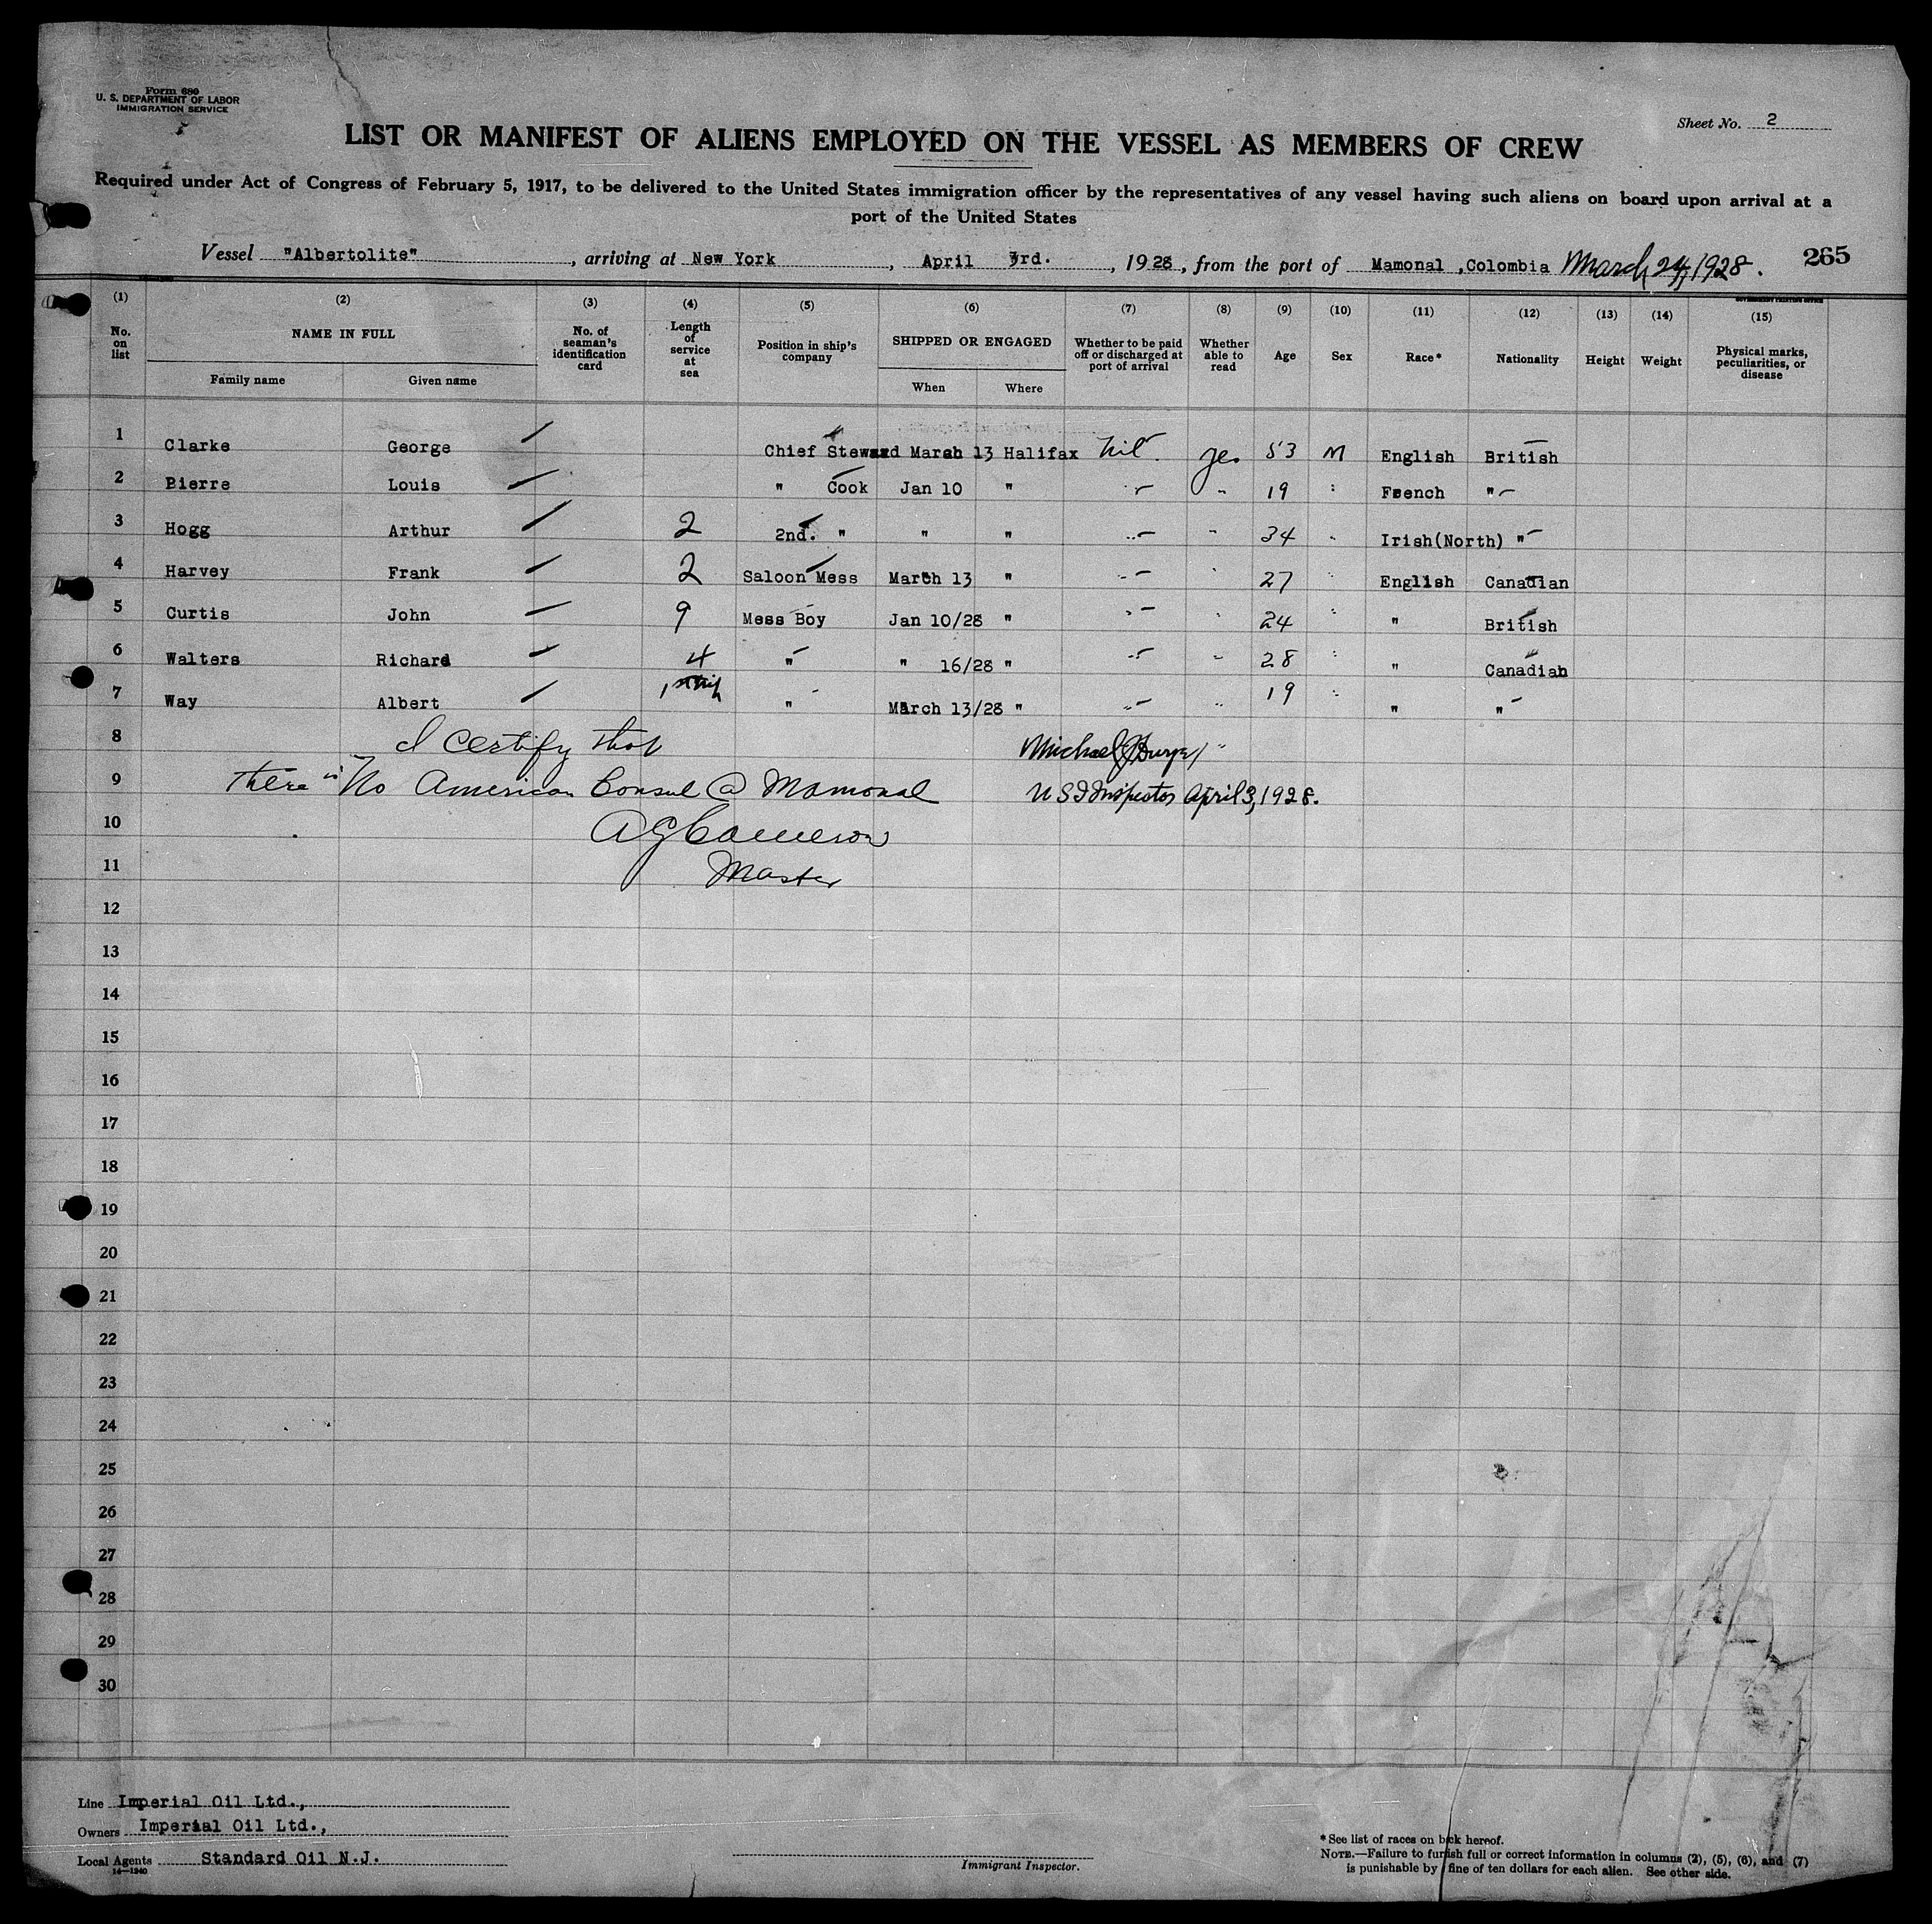 Form 680
U. S. DEPARTMENT OF LABOR
IMMIGRATION SERVICE
Sheet No. 2
LIST OR MANIFEST OF ALIENS EMPLOYED ON THE VESSEL AS MEMBERS OF CREW
Required under Act of Congress of February 5, 1917, to be delivered to the United States immigration officer by the representatives of any vessel having such aliens on board upon arrival at a
port of the United States
Vessel "Albertolite", arriving at New York, April 3rd., 1928, from the port of Mamonal ,Colombia March 24, 1928. 265
(1) (2) (3) (4) (5) (6) (7) (8) (9) (10) (11) (12) (13) (14) (15)
No. on list NAME IN FULL Family name Given name No. of seaman's identification card Length of service at sea Position in ship's company SHIPPED OR ENGAGED When Where Whether to be paid off or discharged at port of arrival Whether able to read Age Sex Race* Nationality Height Weight Physical marks, peculiarities, or disease
1 Clarke George Chief Steward March 13 Halifax Nil. yes 53 M English British
2 Pierre Louis " Cook Jan 10 " " " 19 " French "
3 Hogg Arthur 2 2nd. " " " " " 34 " Irish(North) "
4 Harvey Frank 2 Saloon Mess March 13 " " " 27 " English Canadian
5 Curtis John 9 Mess Boy Jan 10/28 " " " 24 " " British
6 Walters Richard 4 " " 16/28 " " " 28 " " Canadian
7 Way Albert 1st trip " March 13/28 " " " 19 " " "
8 I certify that Michael J
9 there is No American Consul @ Mamonal U S I Inspector April 3, 1928.
10 A G Cameron
11 Master
12
13
14
15
16
17
18
19
20
21
22
23
24
25
26
27
28
29
30
Line Imperial Oil Ltd.,
Owners Imperial Oil Ltd.,
Local Agents Standard Oil N.J.
14—1240
Immigrant Inspector.
*See list of races on back hereof.
NOTE.—Failure to furnish full or correct information in columns (2), (5), (6), and (7)
is punishable by fine of ten dollars for each alien. See other side.